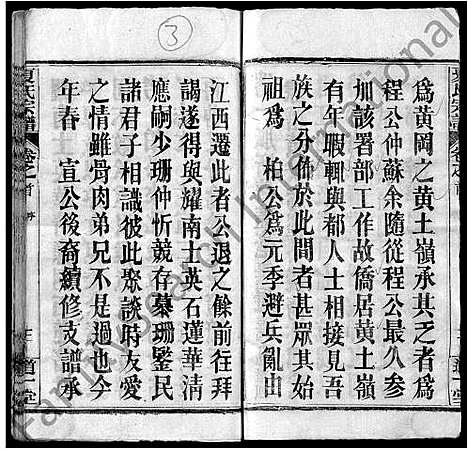 為黃岡之黃土嶺承其乏者為
程公仲蘇余隨從程公最久參
加該署部工作故僑居黃土嶺
有年暇輒與都人士相接見吾
族之分佈於此間者甚眾其始
祖為 柏公為元季避兵亂由
江西遷此者公退之餘前往拜
謁遂得與耀南士英石蓮華清
應嗣少珊仲忻競存慕珊鑒民
諸君子相識彼此聚談時友愛
之情雖骨肉弟兄不是過也今
年春 宣公後裔續修支譜承
夏氏宗譜
卷之首
序
道一堂
3
FamilySearch International